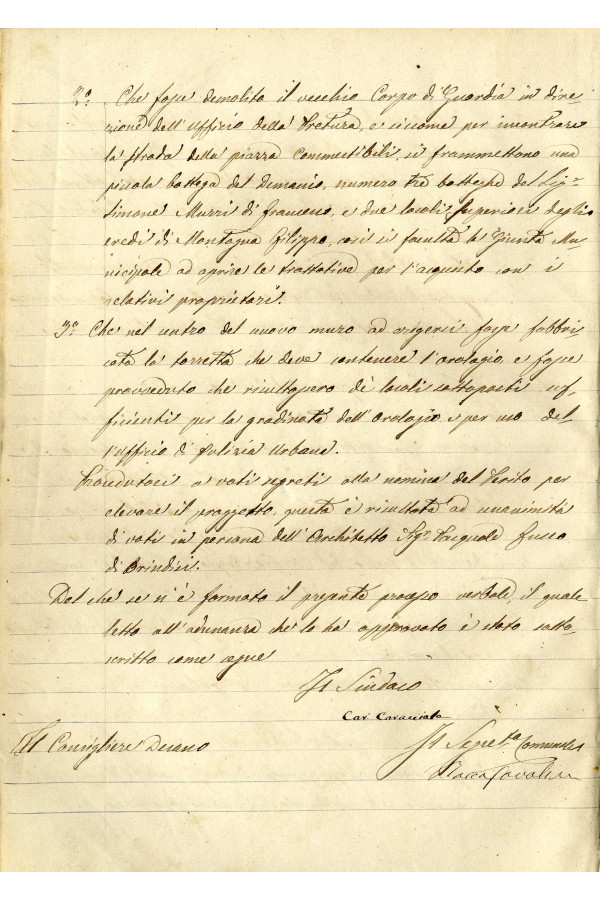 2.º Che fosse demolito il vecchio Corpo di Guardia in dire-
zione dell'Uffizio della Pretura, e siccome per incontrare
la strada della piazza Commestibili, si frammettono una
piccola bottega del Demanio, numero tre botteghe del Sig.r
Simone Murri di Francesco, e due locali superiori degli
eredi di Montagna Filippo, così si facultà la Giunta Mu-
nicipale ad aprire le trattative per l'acquisto con i
relativi proprietari.
3.º Che nel centro del nuovo muro ad erigersi fosse fabbri-
cata la torretta che deve contenere l'orologio, e fosse
provveduto che risultassero dè locali sottoposti suf-
ficienti per la gradinata dell'orologio e per uso del
l'uffizio di Polizia Urbana.
Procedutosi a voti segreti alla nomina del Perito per
elevare il proggetto, questa è risultata ad unanimità
di voti in persona dell'Architetto Sig.r Pasquale Fusco
di Brindisi.
Dal chè se n'è formato il presente processo verbale, il quale
letto all'adunanza che lo ha approvato è stato sotto-
scritto come segue
Il Sindaco
Cav. Caracciolo
Il Consigliere Dezano
Il Segret.ro Comunale